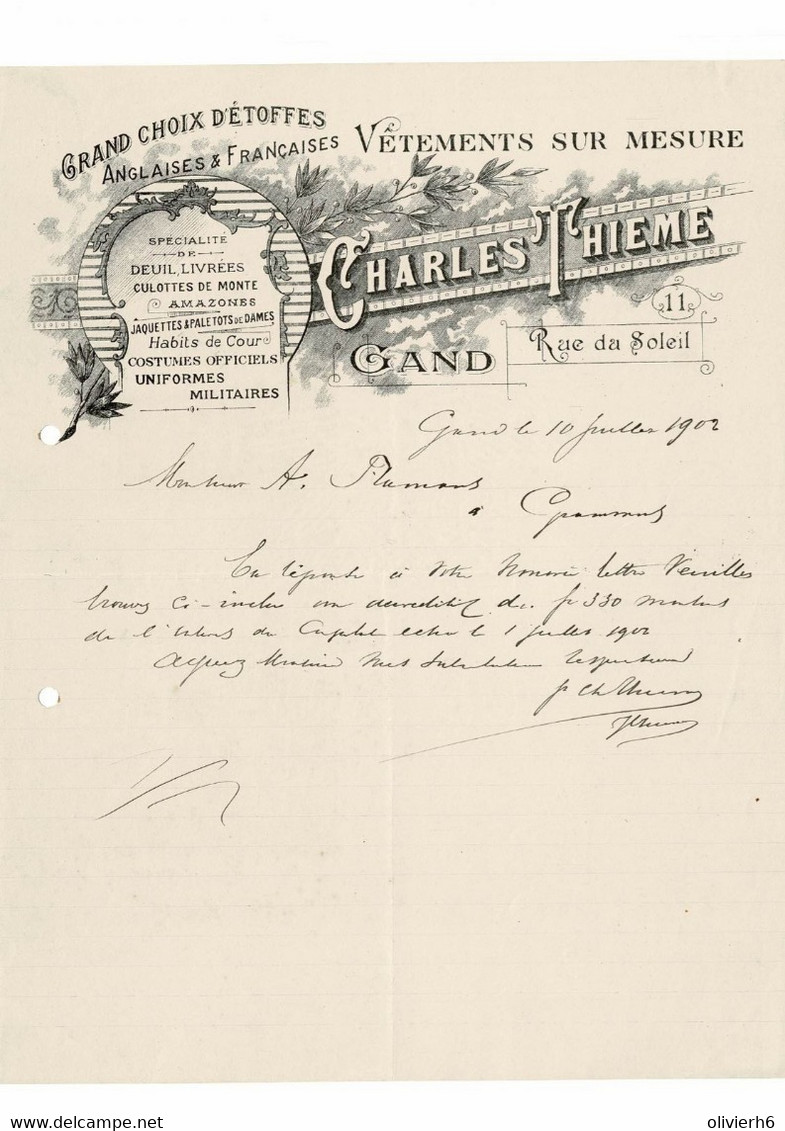 GRAND CHOIX D'ÉTOFFES
ANGLAISES & FRANÇAISES
VÊTEMENTS SUR MESURE
SPECIALITE
DE
DEUIL, LIVRÉES
CULOTTES DE MONTE
AMAZONES
JAQUETTES & PALETOTS DE DAMES
Habits de Cour
COSTUMES OFFICIELS
UNIFORMES
MILITAIRES
CHARLES THIEME
11
GAND
Rue du Soleil
Gand le 10 Juillet 1902
Monsieur A. Flamant
à Grammont
En réponse à votre honorée lettre Veuillez
trouver ci-inclus un accréditif de fr 330 montant
de l'intérêt du Capital échu le 1 juillet 1902
Agréez Monsieur mes salutations respectueuses
p Ch Thieme
Delcampe.net
olivierh6